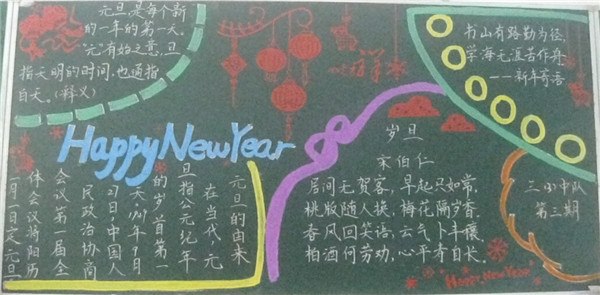 元旦是每个新
的一年的第一天。
"元"有始之意,旦
指天明的时间,也通指
白天。(释义)
HappyNewYear
元旦的由来
在当代,元
旦指公元纪年
的岁首第一
天。1949年9月
27日,中国人
民政治协商
会议第一届全
体会议将阳历
一月一日定元旦
岁旦
宋伯仁
居间无贺客,早起只如常,
桃版随人换,梅花隔岁香。
春风回笑语,云气卜丰穰,
柏酒何劳劝,心平寿自长。
书山有路勤为径,
学海无涯苦作舟
——新年寄语
三小中队
第三期
Happy New Year